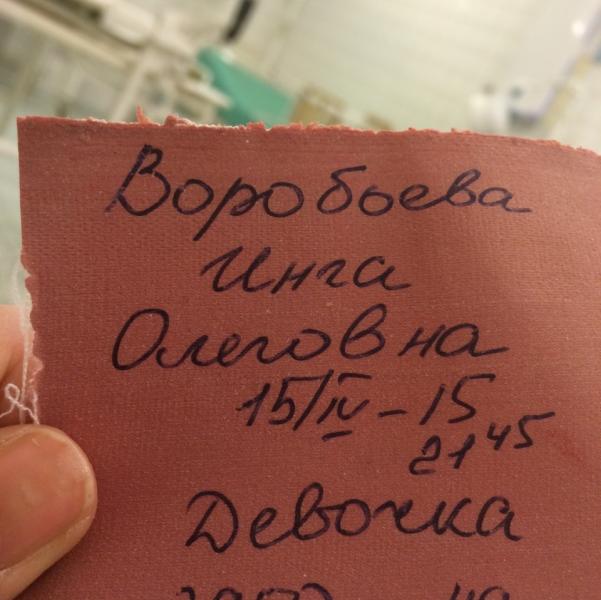 Воробьева
Инга
Олеговна
15/IV - 15
21 45
Девочка